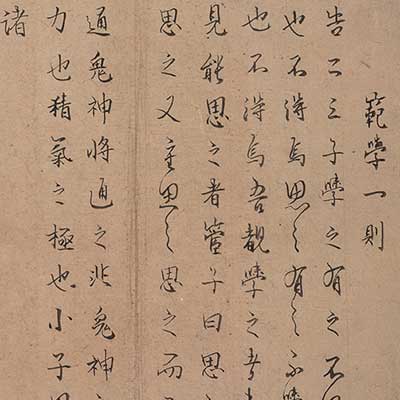 範學一則
告二三子學之有之不
也不得焉思之有之不學
也不得焉吾觀學之者
見能思之者管子曰思
思之又重思之思之而
通鬼神將通之非鬼神之
力也精氣之極也小子
諸